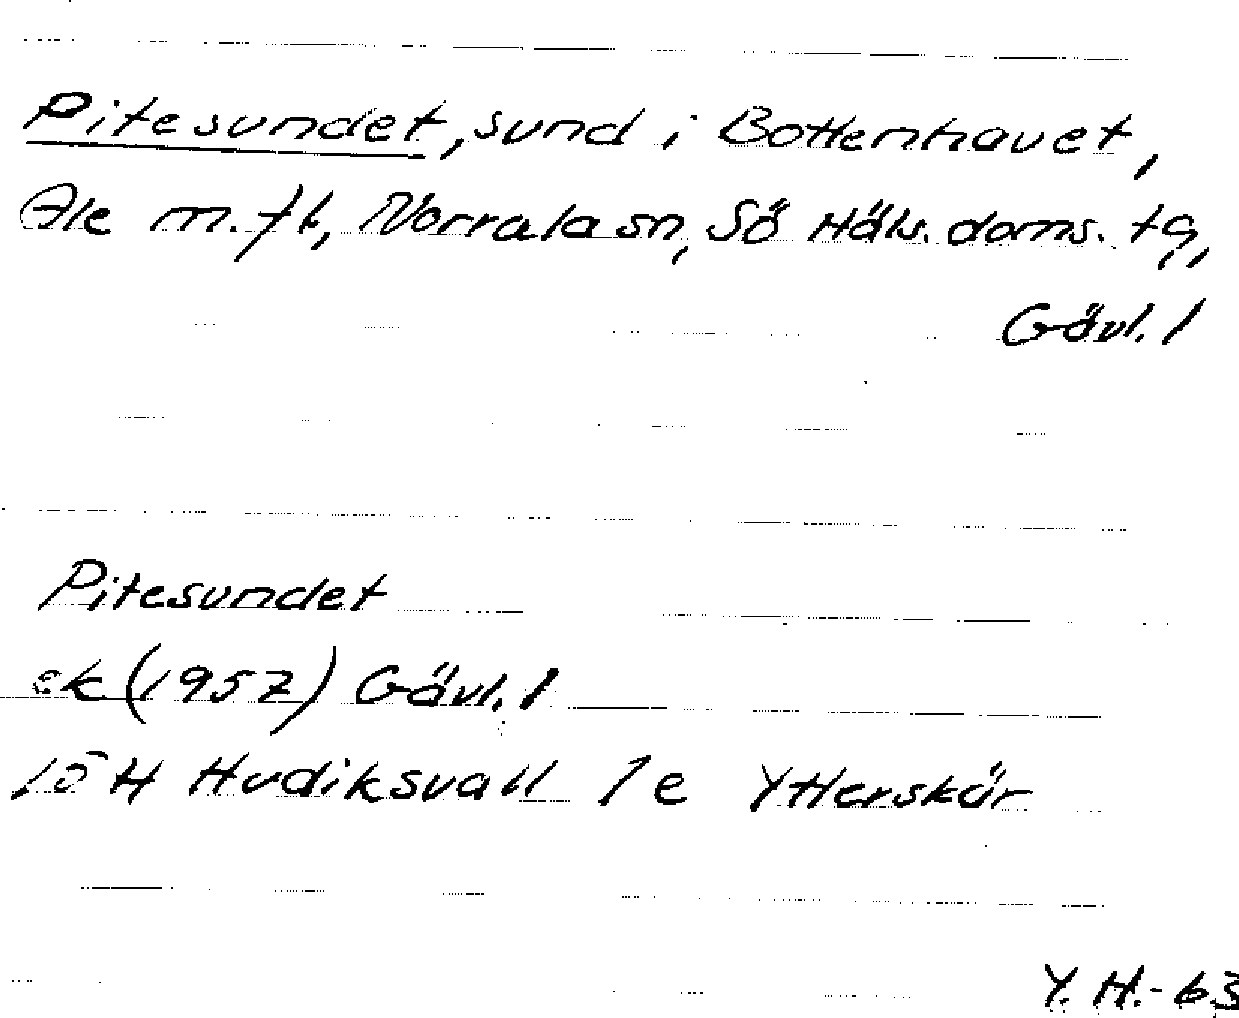 Pitesundet, sund i Bottenhavet,
Åle m. fl, Norrala sn, Sö Häls. doms. tg,
Gävl. l
Pitesundet
ek (1957) Gävl. l
15 H Hudiksvall 1 e Ytterskär
Y. H. - 63